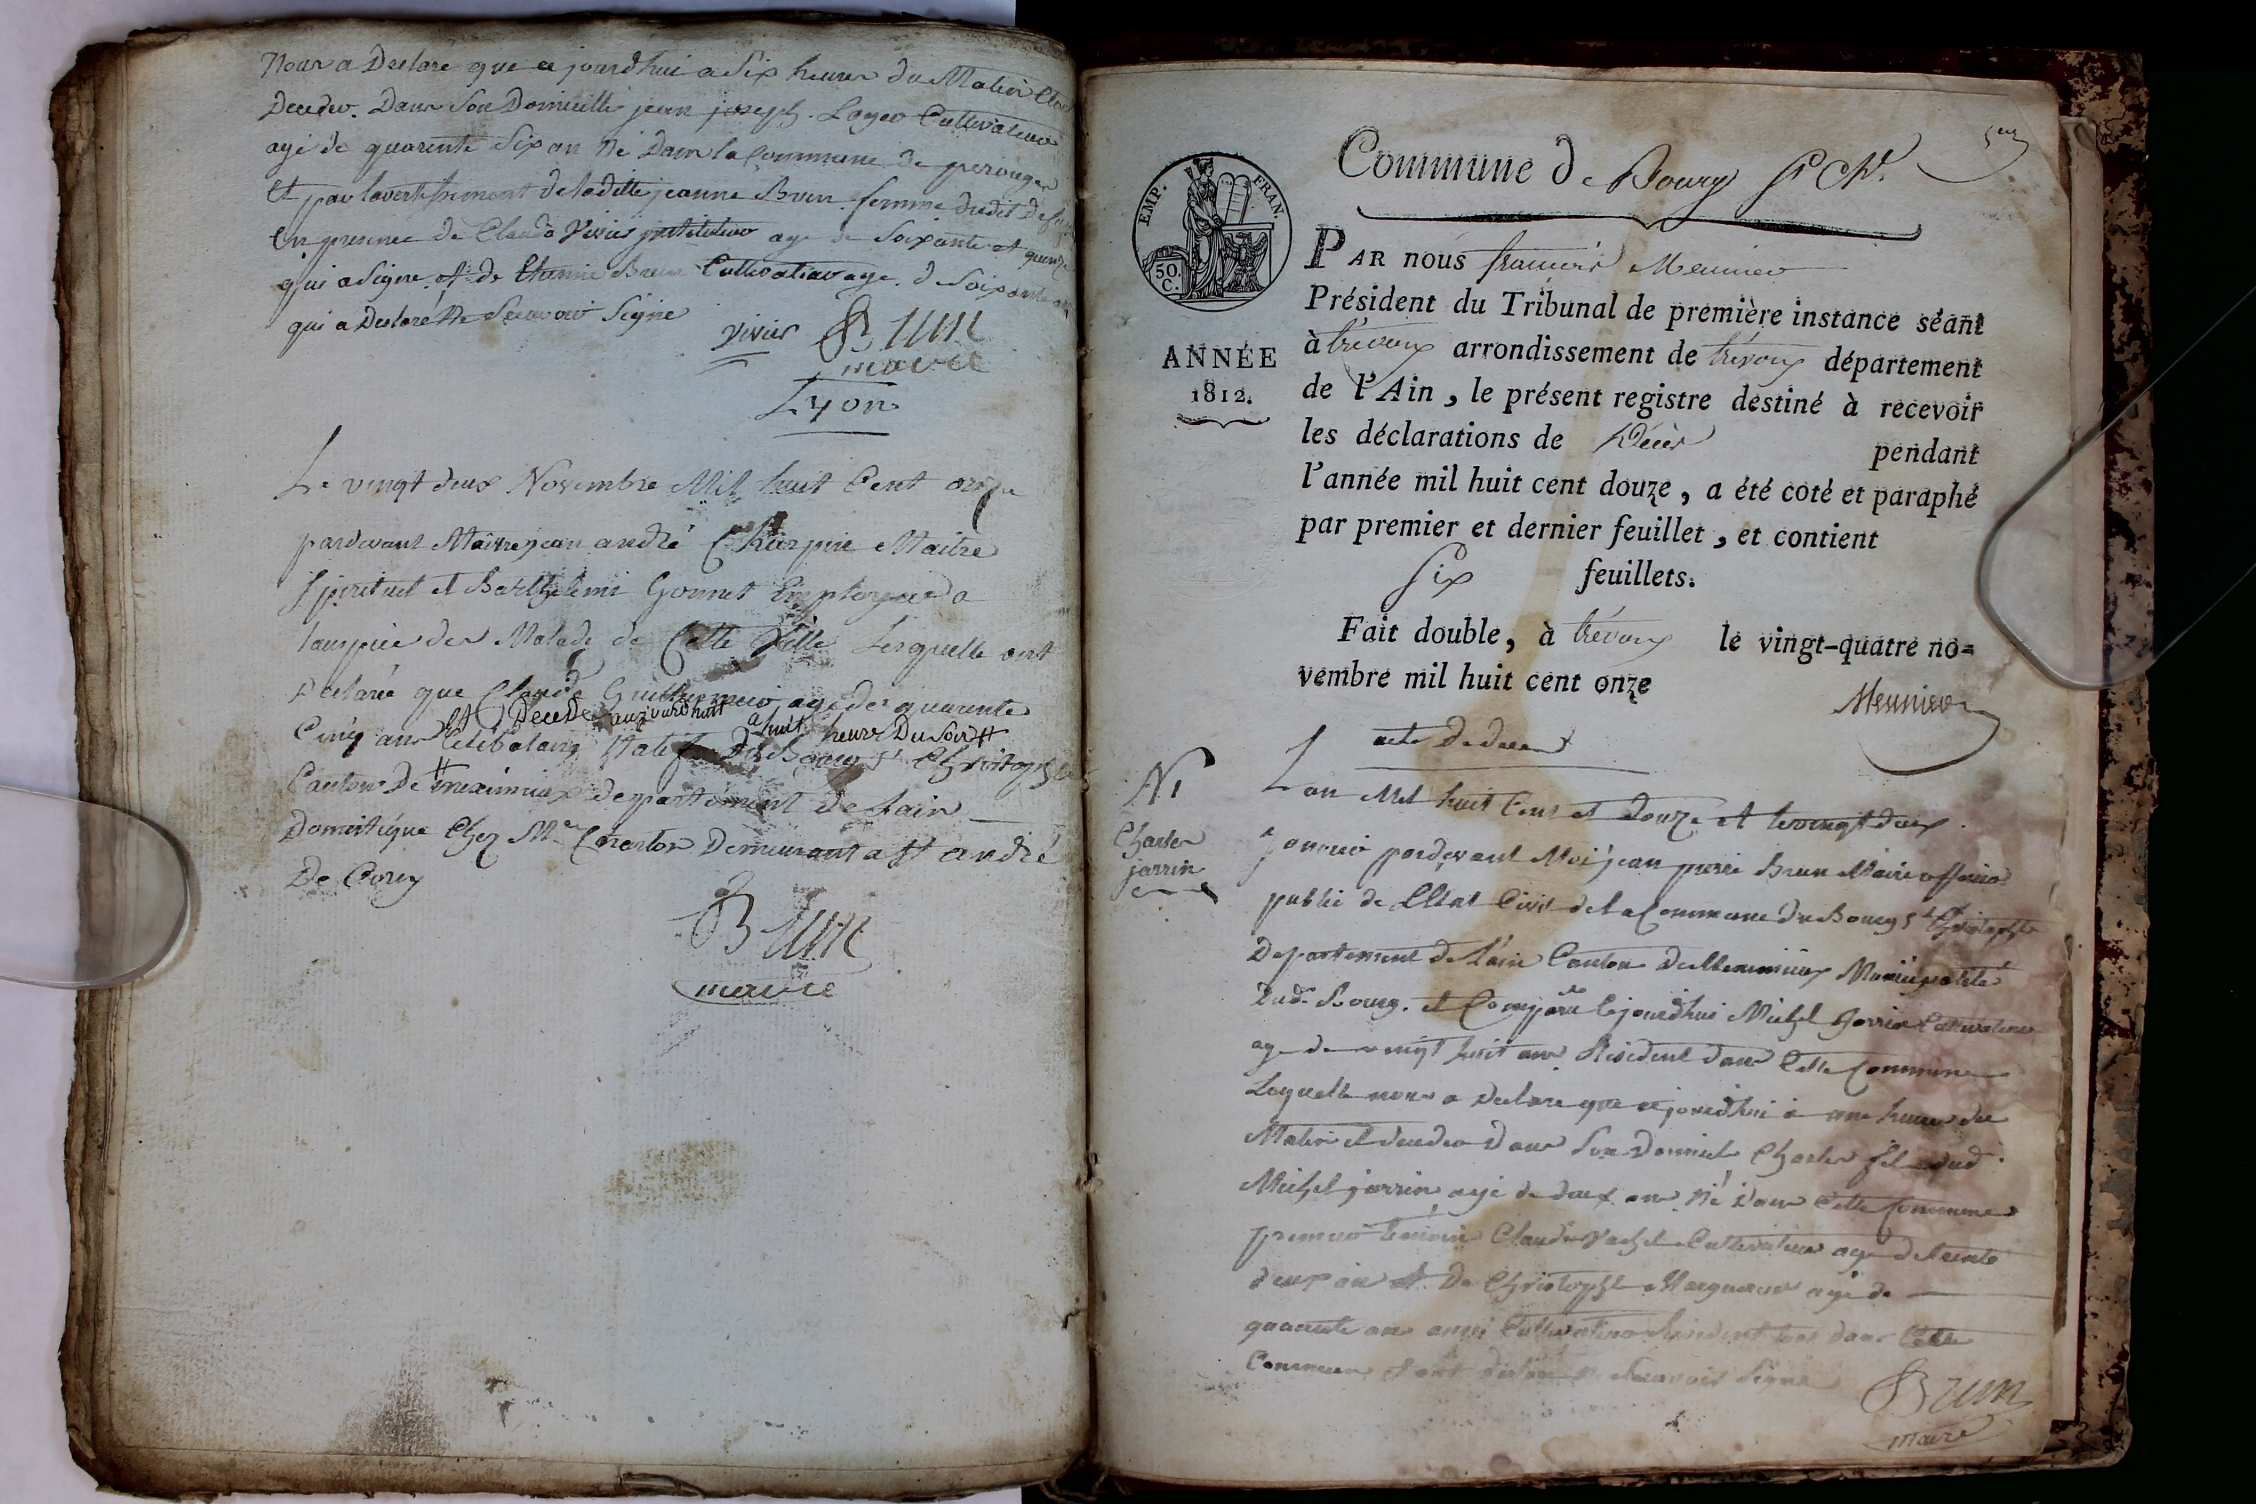 Nous a Declaré que ce jourd'hui a Six heures du Matin Est
Decedeé Dans Son Domicille jean joseph Loyer Cultivateur
agé de quarente Six an Né Dans la Commune de perouges
Et par lavertissement de laditte jeanne Brun femme dudit
En presence de Claude Vivier instituteur age de Soixante et quinze
qui a Signe et de Etienne Brun Cultivateur age de Soixante an
qui a Declaré Ne Scavoir Signe
Vivier Brun
maire
Lyon
Le vingt deux Novembre Mil huit Cent onze
pardevant Maitre jean andré Charpin Maitre
Spirituel et Barthelemi Gonnet Employer a
lauspice des Malade de Cette Ville Lesquelle ont
Declareé que Claude Guillermin agé des quarente
Est Decede aujourdhuit a huit heure Du Soir #
Cinq ans Celibataire Natif De Bourg St Christophe
Canton De meximiux departement de Lain
Domestique Chez Mr Charton Demeurant a St andré
De Corcy
Brun
maire
Commune de Bourg St Ch.
EMP. FRAN.
50.
C.
PAR nous francois Meunier
Président du Tribunal de première instance séant
à trévoux arrondissement de trévoux département
ANNÉE
1812.
de l'Ain, le présent registre destiné à recevoir
les déclarations de Décès pendant
l'année mil huit cent douze, a été coté et paraphé
par premier et dernier feuillet, et contient
Six feuillets.
Fait double, à trévoux le vingt-quatre no=
vembre mil huit cent onze
Meunier
acte de deces
N 1
Charles
jarrin
Lan Mil huit Cent et douze et le vingt deux
janvier pardevant Moi jean pierre Brun Maire officier
public de LEtat Civil de la Commune du Bourg St Christophe
Departement de Lain Canton de Meximiux Municipalité
Dud. Bourg. et Comparu Cejourdhui Michel Jarrin Cultivateur
age de vingt huit ans Resident dans Cette Commune
Laquelle nous a Declare que cejourdhui a une heure du
Matin Et decedeé Dans Son Domicile Charles fils dud
Michel jarrin agé de deux ans Né Dans Cette Commune
premier temoin Claude Vachel Cultivateur age de trente
deux an et De Christophe Margueron agé de
quarente ans aussi Cultivateur Resident tous dans Cette
Commune et ont declare ne Scavoir Signe
Brun
maire